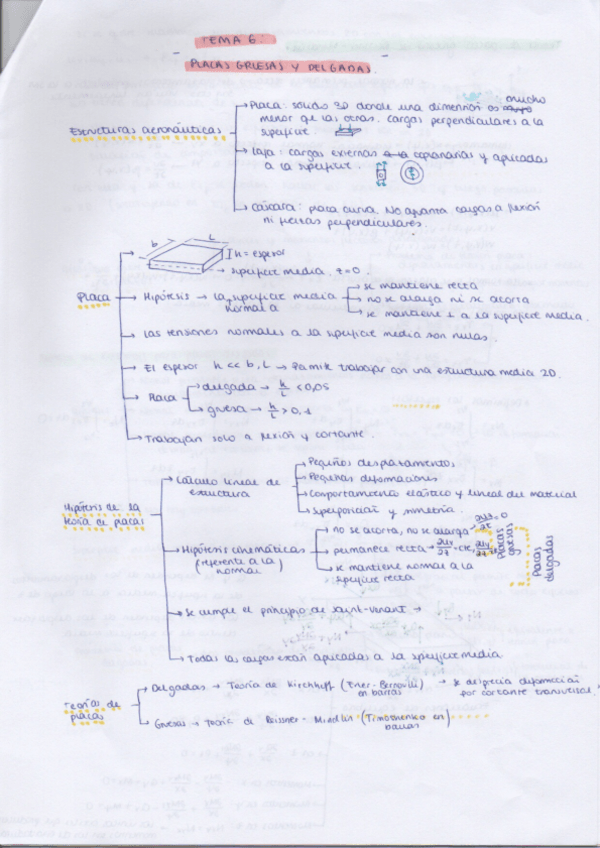 TEMA 6:
PLACAS GRUESAS Y DELGADAS.
Estructuras aeronáuticas
Placa: sólidos 3D donde una dimensión es mucho
menor que las otras. cargas perpendiculares a la
superficie
Laja: cargas externas coplanarias y aplicadas
a la superficie.
Cáscara: placa curva. No aguanta cargas a flexión
ni fuerzas perpendiculares.
Placa
b L
h = espesor
superficie media. z=0
Hipótesis → la superficie media
normal a
se mantiene recta
no se alarga ni se acorta
se mantiene ⊥ a la superficie media.
Las tensiones normales a la superficie media son nulas.
El espesor h << b, L → Permite trabajar con una estructura media 2D.
Placa
delgada → h/L < 0,05
gruesa → h/L > 0,1
Trabajan solo a flexión y cortante.
Hipótesis de la
teoría de placas
Cálculo lineal de
estructura
Pequeños desplazamientos
Pequeñas deformaciones
Comportamiento elástico y lineal del material
Superposición y simetría.
Hipótesis cinemáticas
(referente a la
normal)
no se acorta, no se alarga → = 0
permanece recta → = cte,
se mantiene normal a la
superficie recta
Placas
gruesas
Placas
delgadas
Se cumple el principio de Saint-Venant →
Todas las cargas están aplicadas a la superficie media
Teorías de
placas
Delgadas → Teoría de Kirchhoff (Euler-Bernouilli)
en barras
→ se desprecia deformación
por cortante transversal.
Gruesas → Teoría de Reissner-Mindlin (Timoshenko en)
barras